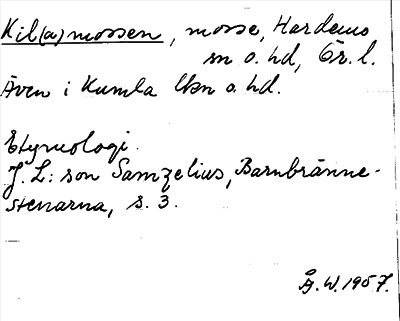 Kil(a)mossen, mosse, Hardemo
sn o. hd, Ör. l.
Även i Kumla lksn o. hd.
Etymologi.
J. L:son Samzelius, Barnbränne-
stenarna, s. 3.
Å. W. 1957.